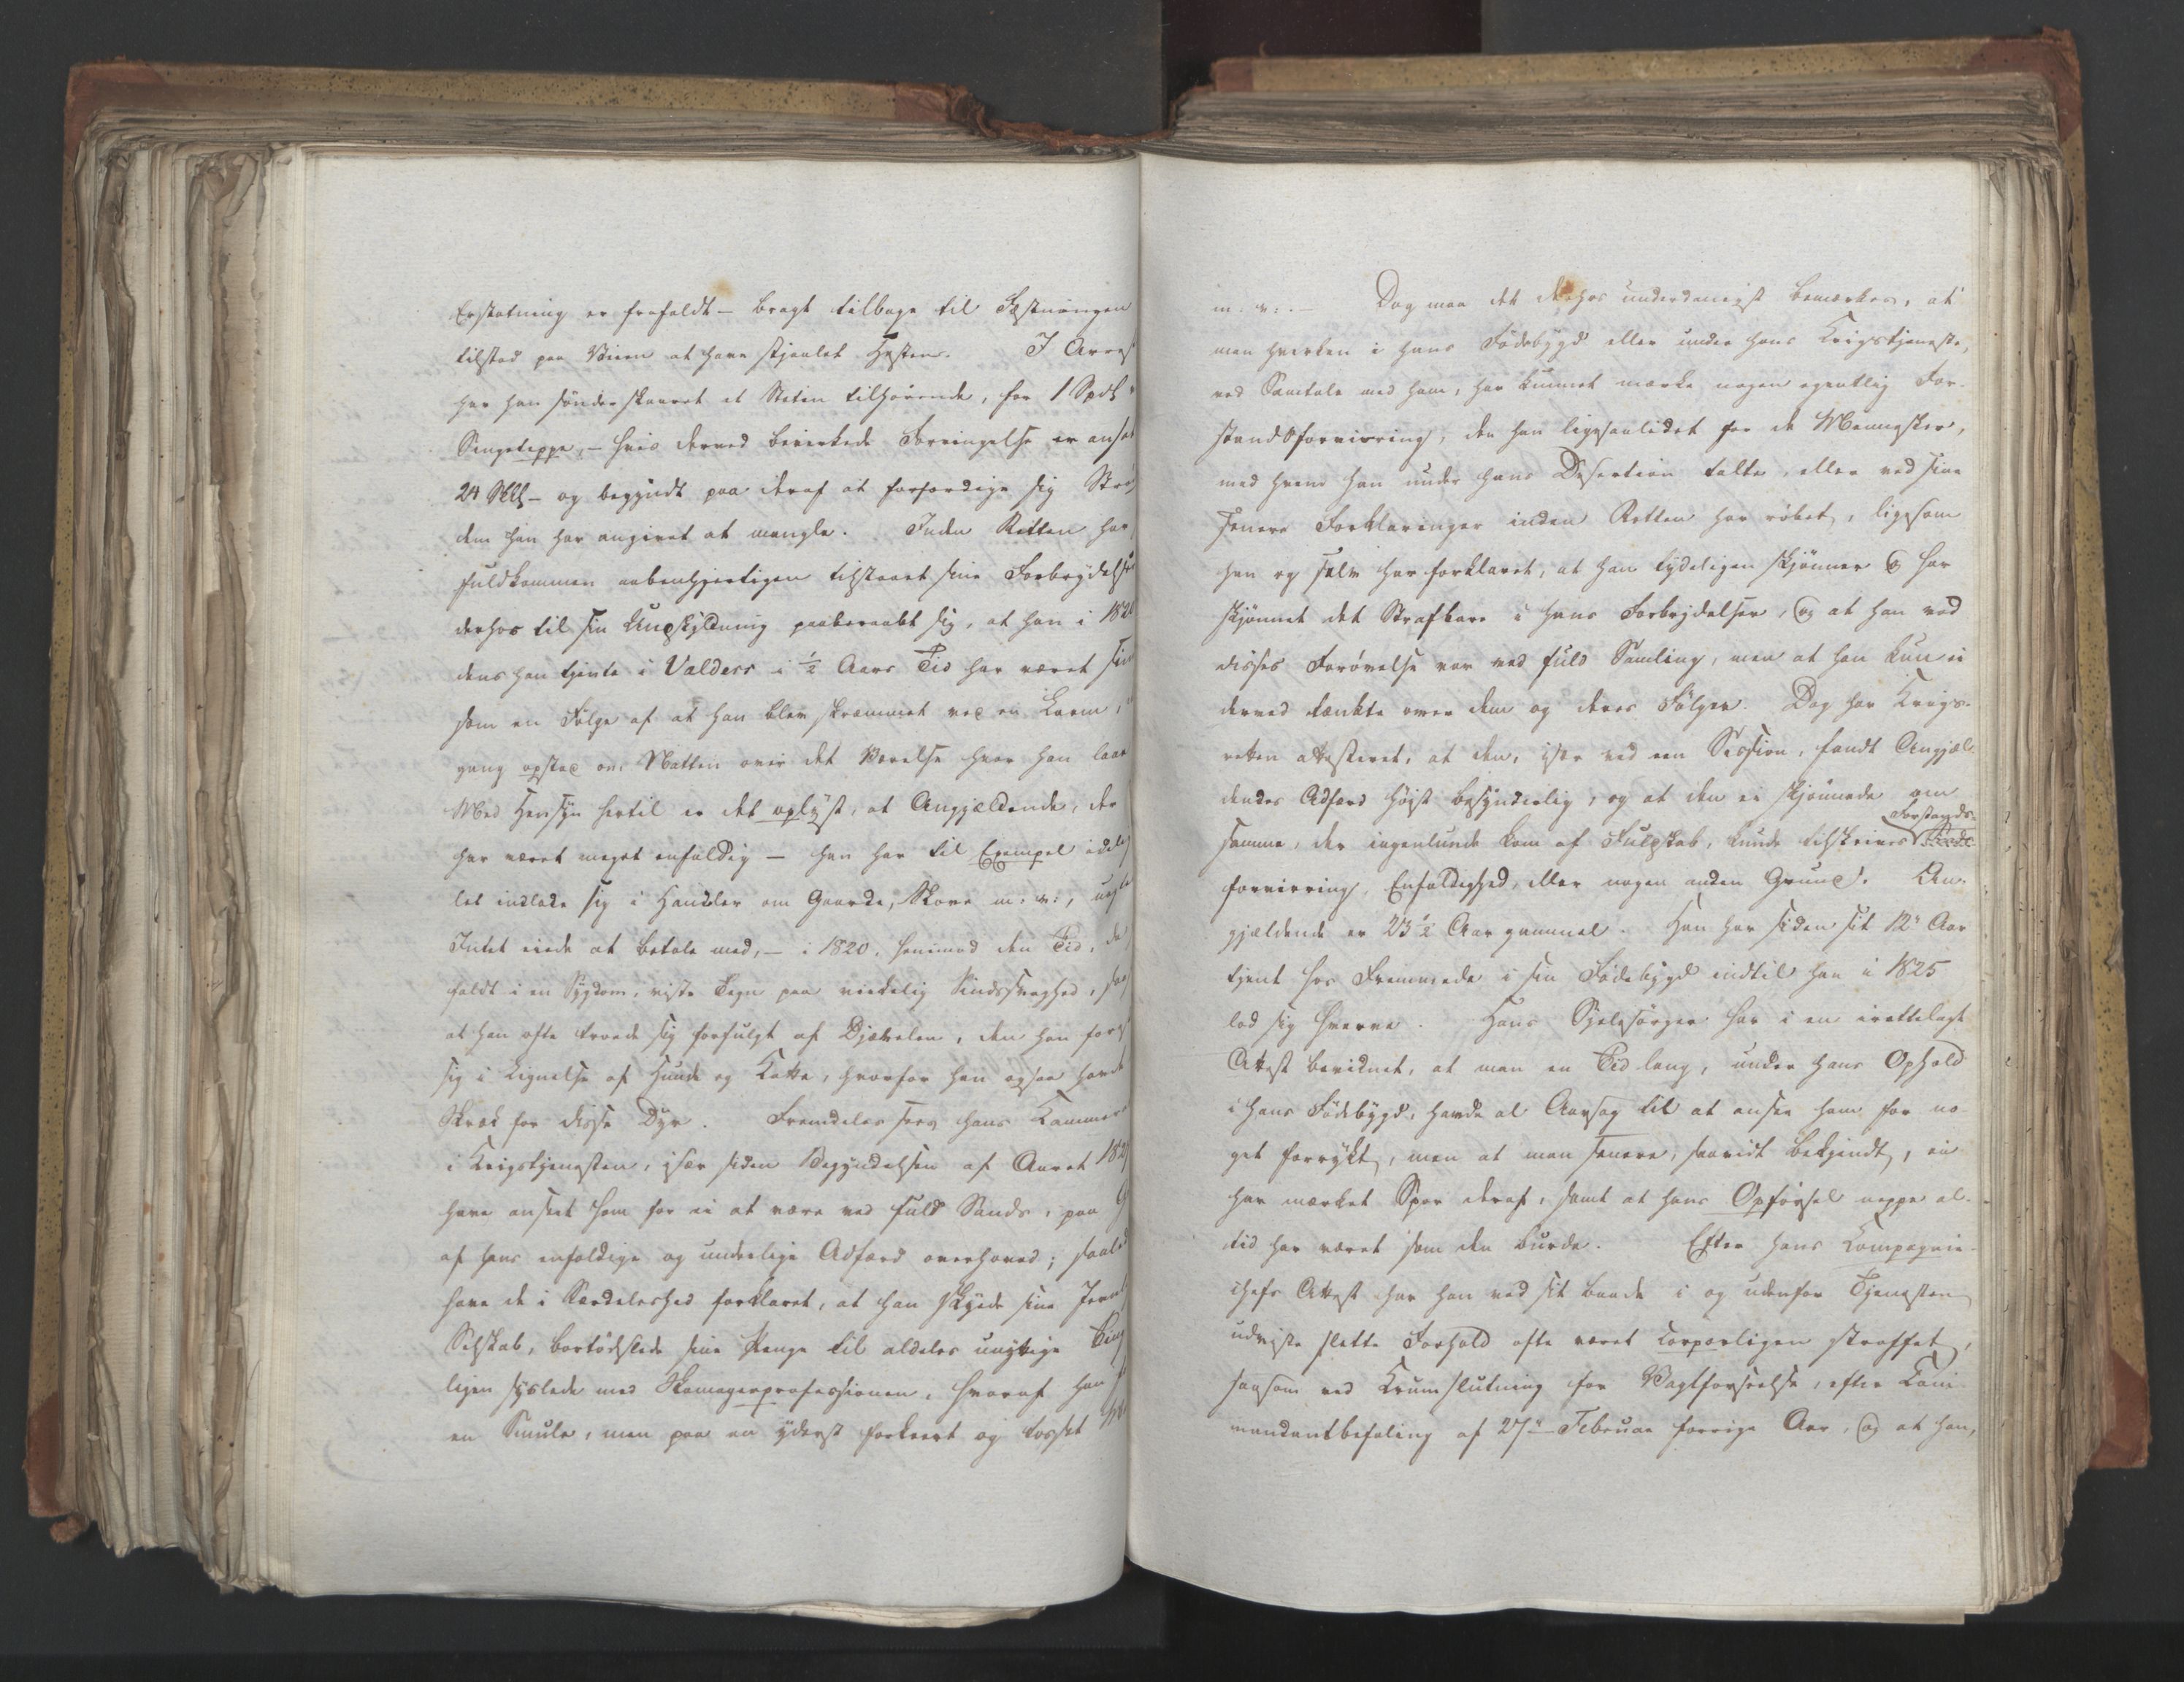 Erstatning er frafaldt – bragt tilbage til Fæstningen
tilstod paa Veien at have stjaalet Hesten. I Arrest
har han sønderskaaret et Staten tilhørende, for 1 Spd
Sengeteppe, – hvis derved bevirkede Forringelse er ansat
24 Skl – og begyndt paa deraf at forfærdige sig
dem han har angivet at mangle. Inden Retten har
fuldkommen aabenhjertigen tilstaaet sine Forbrydelser
derhos til sin Undskyldning paaberaabt sig, at han i
dens han tjente i Valders i ½ Aars Tid har været
som en Følge af at han blev skræmmet ved en Larm,
gang opstod om Natten over det Værelse hvor han laae
Med Hensyn hertil er det oplyst, at Angjældende, der
har været meget enfoldig – han har til Exempel
let indlade sig i Handler om Gaarde, Skove m. v.,
Intet eiede at betale med, – i 1820, henimod den Tid, da
faldt i en Sygdom, viste Tegn paa virkelig Sindssvaghed,
at han ofte troede sig forfulgt af Djævelen, den han
sig i Lignelse af Hunde og Katte, hvorfor han ogsaa havde
Skræk for disse Dyr. Fremdeles hans
i Krigstjenesten, især siden Begyndelsen af Aaret
have anseet ham for ei at være ved fuld Sands, paa
af hans enfoldige og underlige Adfærd overhoved;
have de i Særdeleshed forklaret, at han skyede sine
Selskab, bortødslede sine Penge til aldeles unyttige
ligen syslede med Skomagerprofessionen, hvoraf han
en Smule, men paa en yderst forkeert og tosset
m. v. – Dog maa det derhos underdanigst bemærkes, at
man hverken i hans Fødebygd eller under hans Krigstjeneste,
ved Samtale med ham, har kunnet mærke nogen egentlig For-
standsforvirring, den han ligesaalidet for de Mennesker,
med hvem han under hans Desertion talte, eller ved sine
senere Forklaringer inden Retten har røbet, ligesom
han og selv har forklaret, at han tydeligen skjønner og har
skjønnet det Strafbare i hans Forbrydelser, og at han ved
disses Forøvelse var ved fuld Samling, men at han kun ei
derved tænkte over dem og deres Følger. Dog har Krigs-
retten attesteret, at den, især ved een Session, fandt Angjæl-
dendes Adfærd høist besynderlig, og at den ei skjønnede om
samme, der ingenlunde kom af Fuldskab, kunde tilskrives Forstands-
forvirring, Enfoldighed, eller nogen anden Grund. An-
gjældende er 23½ Aar gammel. Han har siden sit 12te Aar
tjent hos Fremmede i sin Fødebygd indtil han i 1825
lod sig hverve. Hans Sjelesørger har i en irettelagt
Attest bevidnet, at man en Tid lang, under hans Ophold
i hans Fødebygd, havde al Aarsag til at ansee ham for no-
get forrykt, men at man senere, saavidt bekjendt, ei
har mærket Spor deraf, samt at hans Opførsel neppe al-
tid har været som den burde. Efter hans Compagnie-
chefs Attest har han ved sit baade i og udenfor Tjenesten
udviste slette Forhold ofte været corporligen straffet,
saasom ved Krumslutning for Vagtforseelse, efter Com-
mandantbefaling af 27de Februar forrige Aar, og at han,